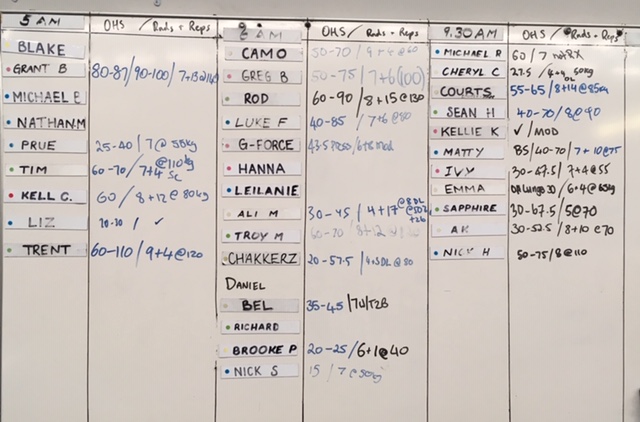 5 AM OHS / Rnds + Reps
BLAKE
GRANT B 80-87/90-100/
MICHAEL B
NATHAN M
PRUE 25-40 / 7 @ 50kg
TIM 60-70/ 7+4 @110kg
KELL C. 60 / 8+12 @ 80kg
LIZ ✓
TRENT 60-110 / 9+4 @120
AM OHS / Rnds + Reps
CAMO 50-70 / @60
GREG B 50-75 / 7+6 (100)
ROD 60-90 / 8+15 @130
LUKE F 40-85 / 7+6 @80
G-FORCE
HANNA
LEILANIE
ALI M 30-45 / 4+17
TROY M
CHAKKERZ 20-57.5 / @ 80
DANIEL
BEL 35-45
RICHARD
BROOKE P 20-25 / 6+1 @ 40
NICK S 15 / 7 @ 50kg
9.30 AM OHS / Rnds + Reps
MICHAEL R 60 / 7
CHERYL C 27.5 / 50kg
COURTS 55-65 / 8+14 @ 85kg
SEAN H 40-70 / 8 @ 90
KELLIE K ✓ / MOD
MATTY 85/40-70 / 7+10 @75
IVY 30-47.5 / 7+4 @ 55
EMMA 6+4 @
SAPPHIRE 30-67.5 / 5 @ 70
AK 30-52.5 / 8+10 @ 70
NICK H 50-75 / 8 @ 110